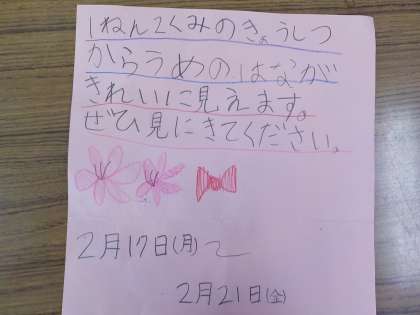 1ねん2くみのきょうしつ
からうめのはなが
きれいに見えます。
ぜひ見にきてください。
2月17日(月)〜
2月21日(金)